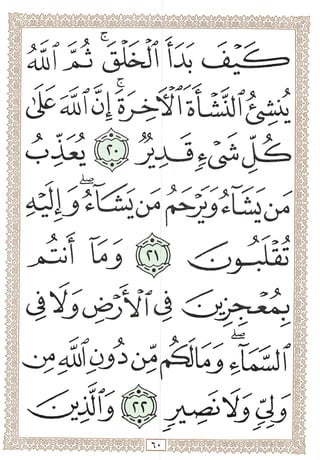 كَيْفَ بَدَأَ ٱلْخَلْقَ ۚ ثُمَّ ٱللَّهُ
يُنشِئُ ٱلنَّشْأَةَ ٱلْآخِرَةَ ۚ إِنَّ ٱللَّهَ عَلَىٰ
كُلِّ شَىْءٍ قَدِيرٌ ٢٠ يُعَذِّبُ
مَن يَشَآءُ وَيَرْحَمُ مَن يَشَآءُ ۖ وَإِلَيْهِ
تُقْلَبُونَ ٢١ وَمَآ أَنتُم
بِمُعْجِزِينَ فِى ٱلْأَرْضِ وَلَا فِى
ٱلسَّمَآءِ ۖ وَمَا لَكُم مِّن دُونِ ٱللَّهِ مِن
وَلِىٍّ وَلَا نَصِيرٍ ٢٢ وَٱلَّذِينَ
٦٠